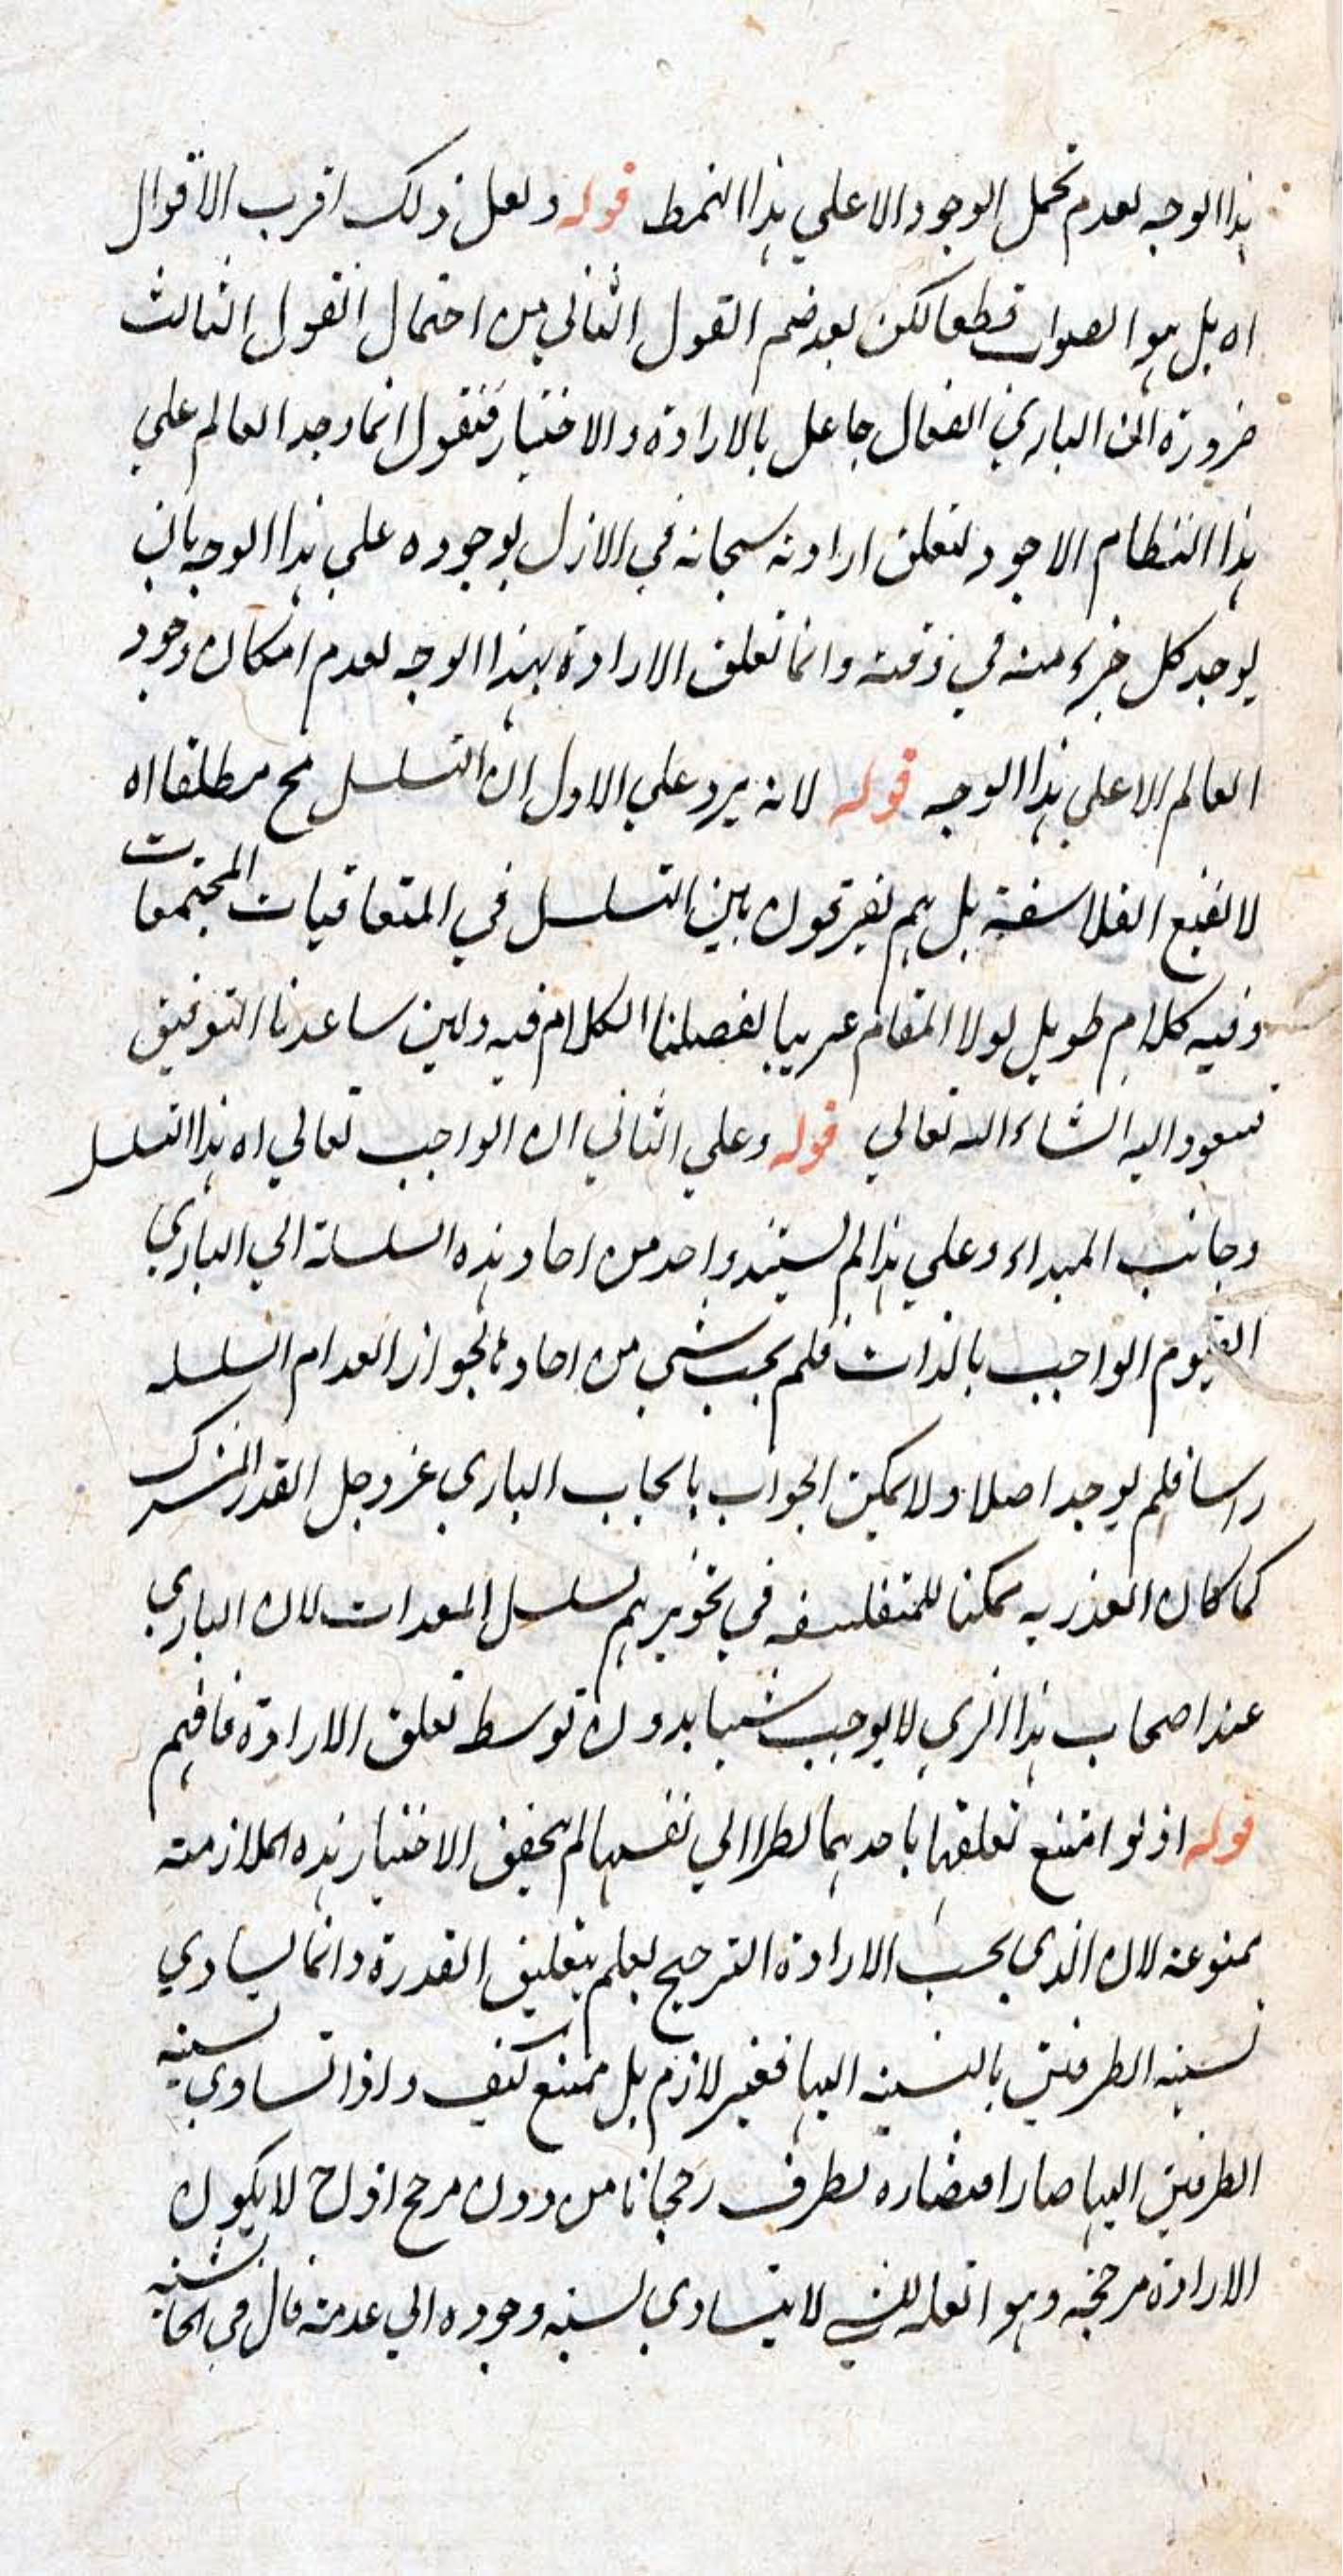 هذا الوجه لعدم تحمل الوجود الا علي هذا النمط قوله ولعل ذلك اقرب الاقوال
اه بل هو الصواب قطعا لكن بعد ضم القول الثاني من احتمال القول الثالث
ضرورة ان الباري الفعال جاعل بالارادة والاختيار فنقول انما وجد العالم علي
هذا النظام الاجود لتعلق ارادته سبحانه في الازل بوجوده علي هذا الوجه بان
يوجد كل جزء منه في وقته وانما تعلق الارادة بهذا الوجه لعدم امكان وجود
العالم الا علي هذا الوجه قوله لانه يرد علي الاول ان التسلسل مح مطلقا اه
لا يقنع الفلاسفة بل هم يفرقون بين التسلسل في المتعاقبات المجتمعات
وفيه كلام طويل لولا المقام غريبا لفصلنا الكلام فيه ولين ساعدنا التوفيق
سنعود اليه انشاء الله تعالي قوله وعلي الثاني ان الواجب تعالي اه هذا التسلسل
وجانب المبداء وعلي هذا لم يستند واحد من احاد هذه السلسلة الي الباري
القيوم الواجب بالذات فلم يجب شي من احادها لجواز انعدام السلسله
راسا فلم يوجد اصلا ولا يمكن الجواب بايجاب الباري عز وجل القدر المشترك
كما كان العذر به ممكنا للمتفلسفه في تجويزهم تسلسل المعدات لان الباري
عند اصحاب هذا الري لا يوجب شيئا بدون توسط تعلق الارادة فافهم
قوله اذ لو امتنع تعلقها باحدهما نظرا الي نفسها لم يتحقق الاختيار هذه الملازمة
ممنوعة لان الذي يجب الارادة الترجيح لعلم بتعليق القدرة وانما يساوي
نسبة الطرفين بالنسبة اليها فغير لازم بل ممتنع كيف واذا تساوي نسبة
الطرفين اليها صار اختياره لطرف رجحانا من دون مرجح اذ ح لا يكون
الارادة مرجحة وهو العلة للشي لا يتساوي نسبة وجوده الي عدمه قال في الحاشية